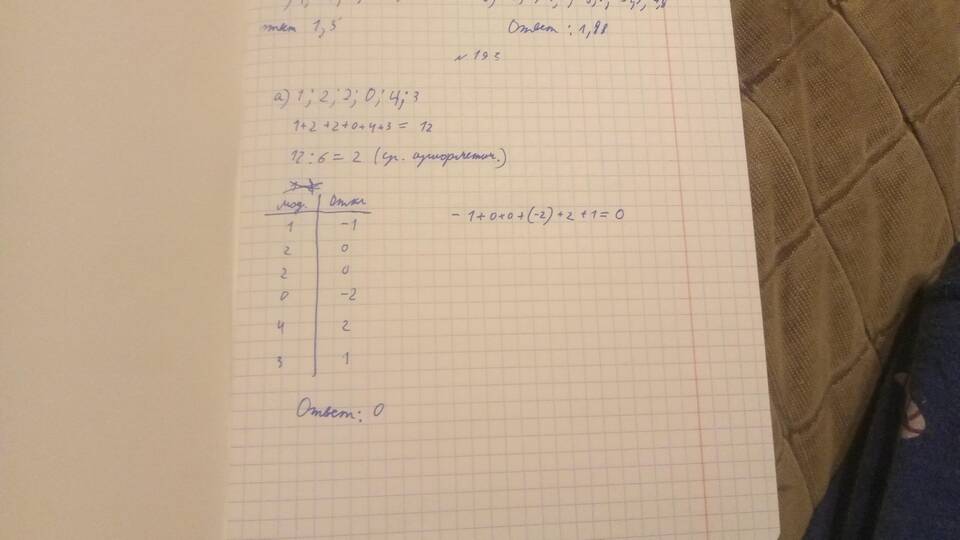 ткт 1,5
Ответ: 1,98
№ 193
а) 1; 2; 2; 0; 4; 3
1+2+2+0+4+3 = 12
12:6 = 2 (ср. арифметич.)
мод. Откл
- 1+0+0+(-2)+2+1=0
1 -1
2 0
2 0
0 -2
4 2
3 1
Ответ: 0